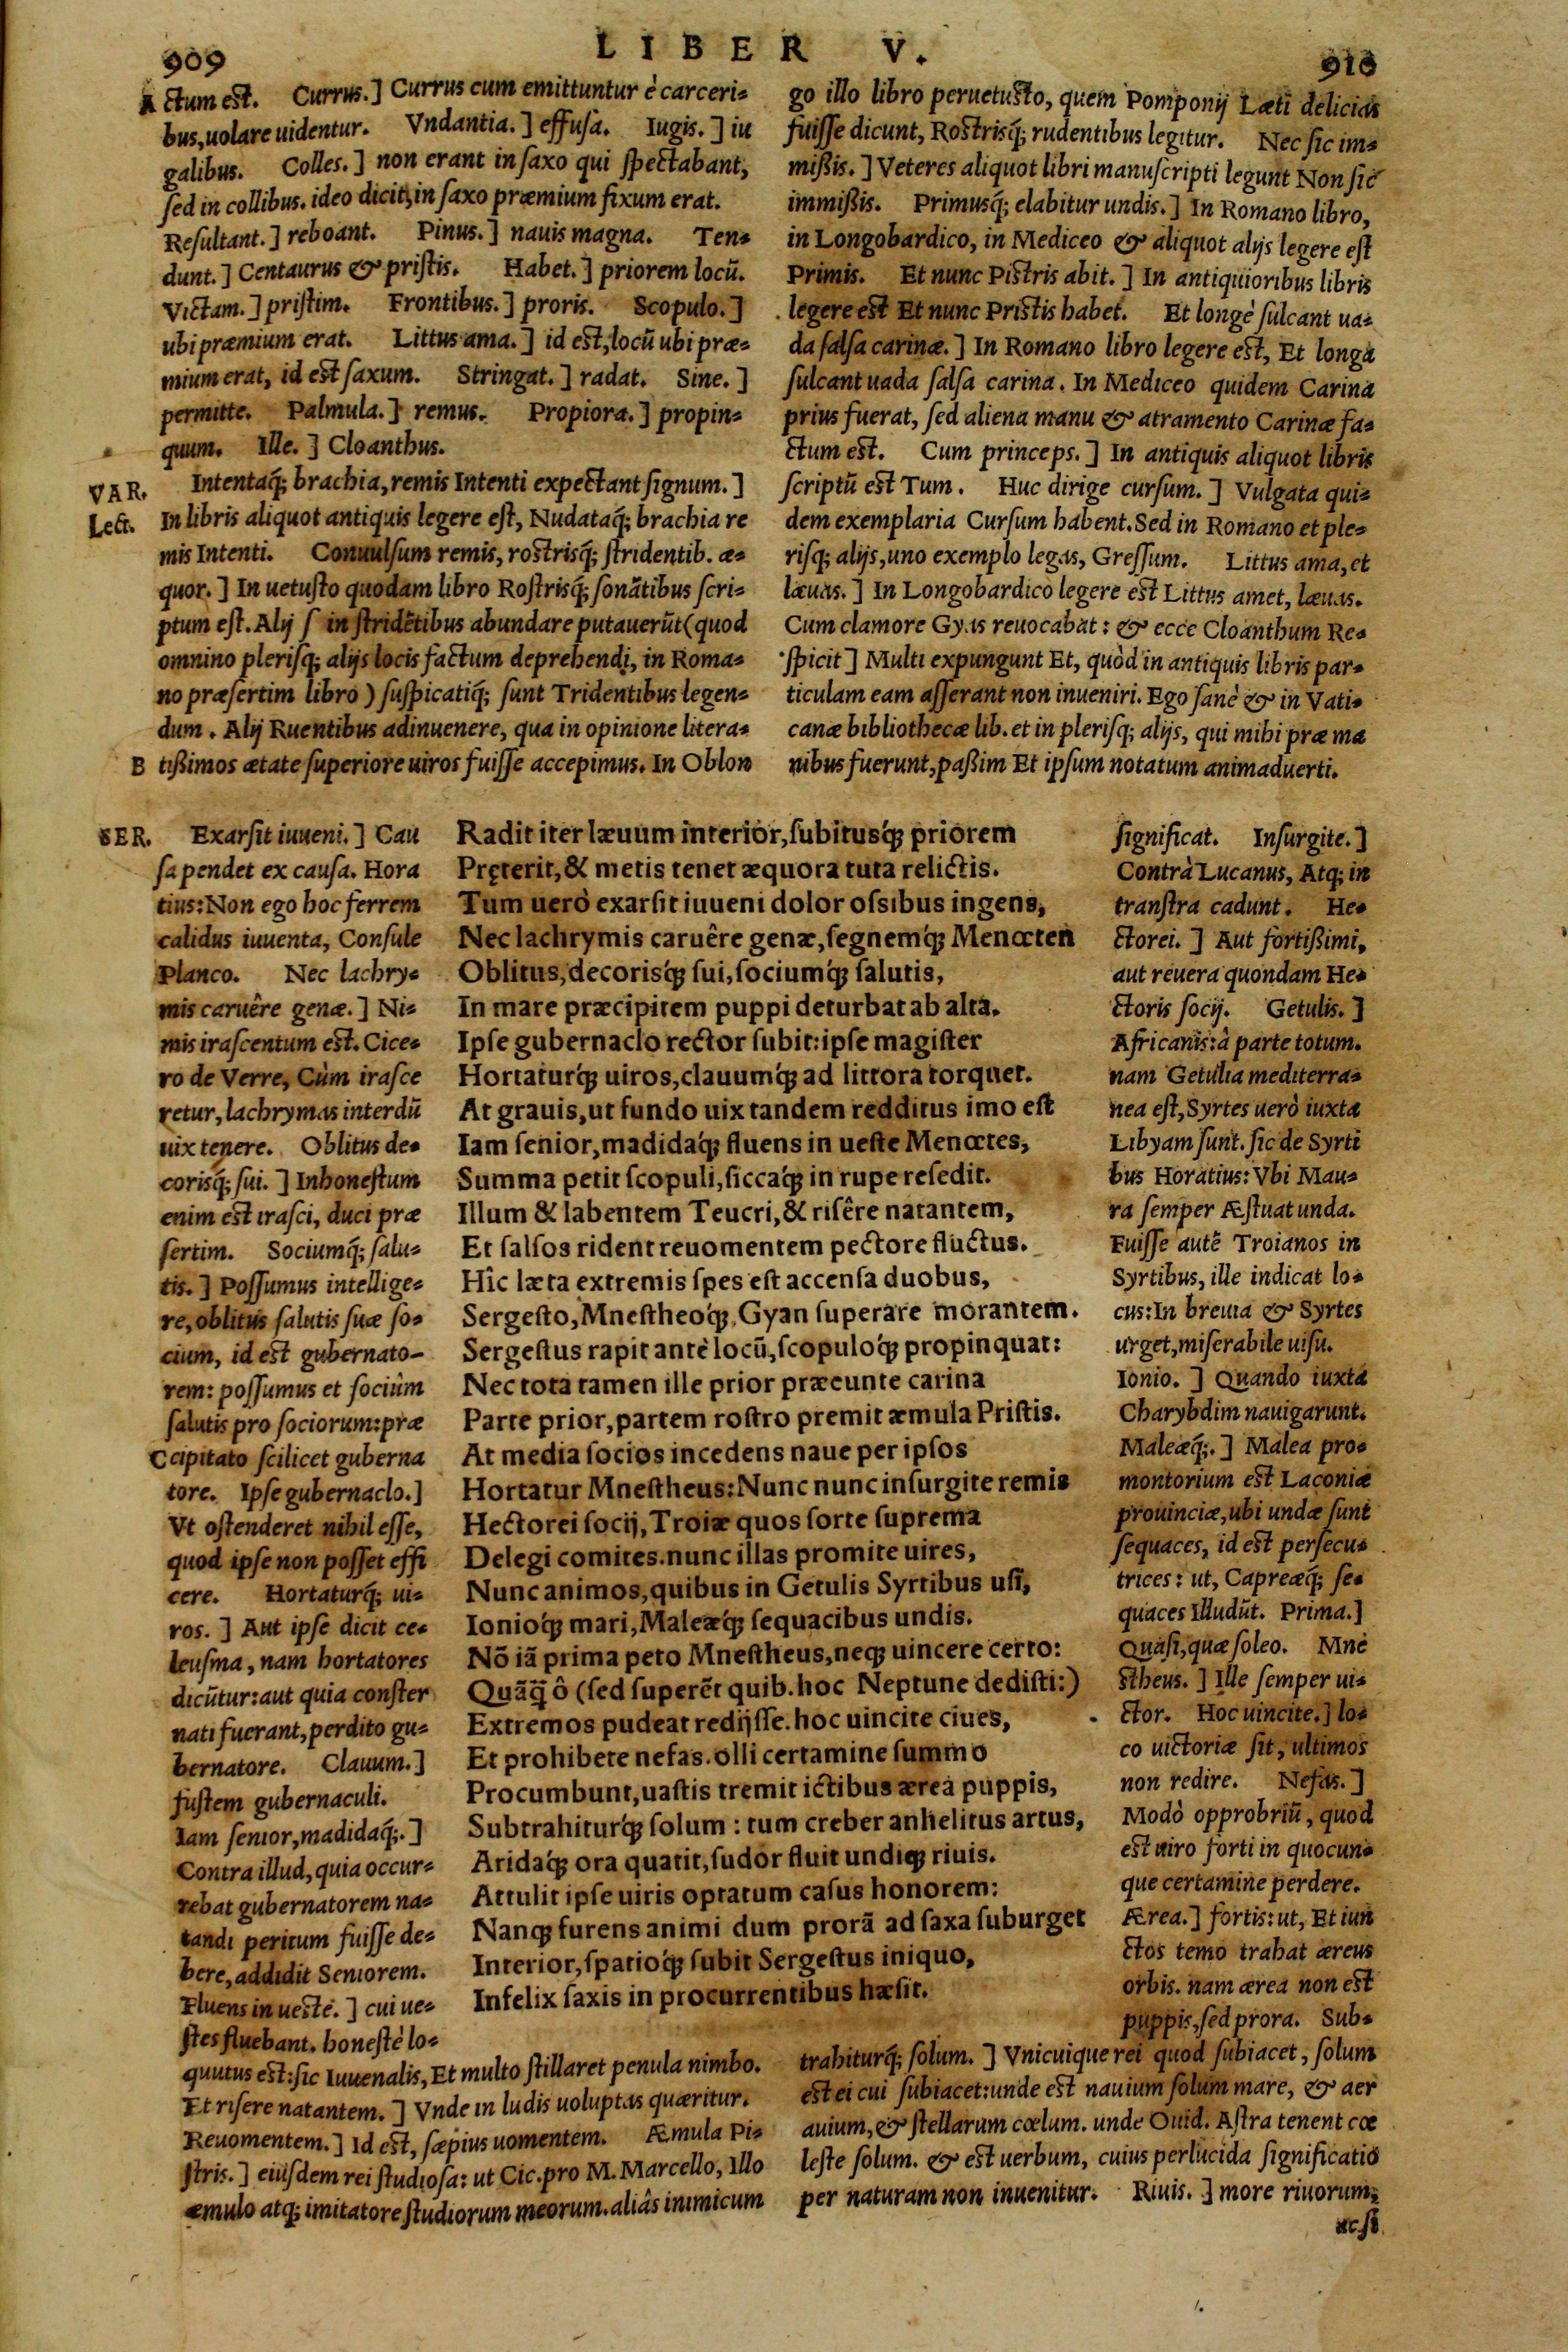 909
LIBER V.
910
A ctum est. Currus.] Currus cum emittuntur è carceri-
bus, uolare uidentur. Vndantia.] effusa. Iugis.] iu
galibus. Colles.] non erant in saxo qui spectabant,
sed in collibus. ideo dicit, in saxo præmium fixum erat.
Resultant.] reboant. Pinus.] nauis magna. Ten-
dunt.] Centaurus & pristis. Habet.] priorem locū.
Victam.] pristim. Frontibus.] proris. Scopulo.]
ubi præmium erat. Littus ama.] id est, locū ubi præ-
mium erat, id est saxum. Stringat.] radat. Sine.]
permitte. Palmula.] remus. Propiora.] propin-
quum. Ille.] Cloanthus.
VAR. Lect.
Intentaq́; brachia, remis Intenti expectant signum.]
In libris aliquot antiquis legere est, Nudataq́; brachia re
mis Intenti. Conuulsum remis, rostrisq́; stridentib. æ-
quor.] In uetusto quodam libro Rostrisq́; sonātibus scri-
ptum est. Alij s in stridētibus abundare putauerūt (quod
omnino plerisq; alijs locis factum deprehendi, in Roma-
no præsertim libro) suspicatiq́; sunt Tridentibus legen-
dum. Alij Ruentibus adinuenere, qua in opinione litera-
B tißimos ætate superiore uiros fuisse accepimus. In Oblon
go illo libro peruetusto, quem Pomponij Læti delicias
fuisse dicunt, Rostrisq́; rudentibus legitur. Nec sic im-
mißis.] Veteres aliquot libri manuscripti legunt Non sic
immißis. Primusq́; elabitur undis.] In Romano libro,
in Longobardico, in Mediceo & aliquot alijs legere est
Primis. Et nunc Pistris abit.] In antiquioribus libris
legere est Et nunc Pristis habet. Et longè sulcant ua-
da salsa carinæ.] In Romano libro legere est, Et longa
sulcant uada salsa carina. In Mediceo quidem Carina
prius fuerat, sed aliena manu & atramento Carinæ fa-
ctum est. Cum princeps.] In antiquis aliquot libris
scriptū est Tum. Huc dirige cursum.] Vulgata qui-
dem exemplaria Cursum habent. Sed in Romano et ple-
risq; alijs, uno exemplo legas, Gressum. Littus ama, et
læuas.] In Longobardico legere est Littus amet, læuas.
Cum clamore Gyas reuocabat: & ecce Cloanthum Re-
spicit] Multi expungunt Et, quòd in antiquis libris par-
ticulam eam asserant non inueniri. Ego sanè & in Vati-
canæ bibliothecæ lib. et in plerisq; alijs, qui mihi præ ma
nibus fuerunt, paßim Et ipsum notatum animaduerti.
SER. Exarsit iuueni.] Cau
sa pendet ex causa. Hora
tius: Non ego hoc ferrem
calidus iuuenta, Consule
Planco. Nec lachry-
mis caruêre genæ.] Ni-
mis irascentum est. Cice-
ro de Verre, Cùm irasce
retur, lachrymas interdū
uix tenere. Oblitus de-
corisq́; sui.] Inhonestum
enim est irasci, duci præ
sertim. Sociumq́; salu-
tis.] Possumus intellige-
re, oblitus salutis suæ so-
cium, id est gubernato-
rem: possumus et sociûm
salutis pro sociorum: præ
C cipitato scilicet guberna
tore. Ipse gubernaclo.]
Vt ostenderet nihil esse,
quod ipse non posset effi
cere. Hortaturq́; ui-
ros.] Aut ipse dicit ce-
leusma, nam hortatores
dicūtur: aut quia conster
nati fuerant, perdito gu-
bernatore. Clauum.]
fustem gubernaculi.
Iam senior, madidaq́;.]
Contra illud, quia occur-
rebat gubernatorem na-
tandi peritum fuisse de-
bere, addidit Seniorem.
Fluens in ueste.] cui ue-
stes fluebant. honestè lo-
quutus est: sic Iuuenalis, Et multo stillaret penula nimbo.
Et risere natantem.] Vnde in ludis uoluptas quæritur.
Reuomentem.] Id est, sæpius uomentem. Æmula Pi-
stris.] eiusdem rei studiosa: ut Cic. pro M. Marcello, Illo
æmulo atq; imitatore studiorum meorum. aliâs inimicum
Radit iter læuum interior, subitusq́; priorem
Pręterit, & metis tenet æquora tuta relictis.
Tum uerò exarsit iuueni dolor ossibus ingens,
Nec lachrymis caruêre genæ, segnemq́; Menœten
Oblitus, decorisq́; sui, sociumq́; salutis,
In mare præcipitem puppi deturbat ab alta.
Ipse gubernaclo rector subit: ipse magister
Hortaturq́; uiros, clauumq́; ad littora torquet.
At grauis, ut fundo uix tandem redditus imo est
Iam senior, madidaq́; fluens in ueste Menœtes,
Summa petit scopuli, siccaq́; in rupe resedit.
Illum & labentem Teucri, & risêre natantem,
Et salsos rident reuomentem pectore fluctus.
Hîc læta extremis spes est accensa duobus,
Sergesto, Mnestheoq́; Gyan superare morantem.
Sergestus rapit antè locū, scopuloq́; propinquat:
Nec tota tamen ille prior præeunte carina
Parte prior, partem rostro premit æmula Pristis.
At media socios incedens naue per ipsos
Hortatur Mnestheus: Nunc nunc insurgite remis
Hectorei socij, Troiæ quos sorte suprema
Delegi comites. nunc illas promite uires,
Nunc animos, quibus in Getulis Syrtibus usi,
Ionioq́; mari, Maleæq́; sequacibus undis.
Nō iā prima peto Mnestheus, neq; uincere certo:
Quāq̄ ô (sed superēt quib. hoc Neptune dedisti:)
Extremos pudeat redijsse. hoc uincite ciues,
Et prohibete nefas. olli certamine summo
Procumbunt, uastis tremit ictibus ærea puppis,
Subtrahiturq́; solum: tum creber anhelitus artus,
Aridaq́; ora quatit, sudor fluit undiq; riuis.
Attulit ipse uiris optatum casus honorem:
Nanq; furens animi dum prorā ad saxa suburget
Interior, spatioq́; subit Sergestus iniquo,
Infelix saxis in procurrentibus hæsit.
significat. Insurgite.]
Contrà Lucanus, Atq; in
transtra cadunt. He-
ctorei.] Aut fortißimi,
aut reuera quondam He-
ctoris socij. Getulis.]
Africanis: à parte totum.
nam Getulia mediterra-
nea est, Syrtes uerò iuxta
Libyam sunt. sic de Syrti
bus Horatius: Vbi Mau-
ra semper Æstuat unda.
Fuisse autē Troianos in
Syrtibus, ille indicat lo-
cus: In breuia & Syrtes
urget, miserabile uisu.
Ionio.] Quando iuxta
Charybdim nauigarunt.
Maleæq́;.] Malea pro-
montorium est Laconiæ
prouinciæ, ubi undæ sunt
sequaces, id est persecu-
trices: ut, Capreæq́; se-
quaces Illudūt. Prima.]
Quasi, quæ soleo. Mne
stheus.] Ille semper ui-
ctor. Hoc uincite.] lo-
co uictoriæ sit, ultimos
non redire. Nefas.]
Modò opprobriū, quod
est uiro forti in quocun-
que certamine perdere.
Ærea.] fortis: ut, Et iun
ctos temo trahat æreus
orbis. nam ærea non est
puppis, sed prora. Sub-
trahiturq́; solum.] Vnicuique rei quod subiacet, solum
est ei cui subiacet: unde est nauium solum mare, & aer
auium, & stellarum cœlum. unde Ouid. Astra tenent cœ
leste solum. & est uerbum, cuius perlucida significatio
per naturam non inuenitur. Riuis.] more riuorum,
ac si